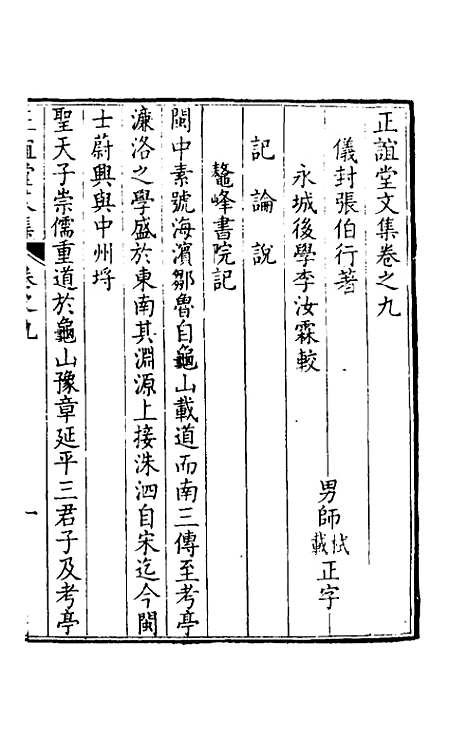 正誼堂文集卷之九
儀封張伯行著　男師栻載正字
永城後學李汝霖較
記論說
鼇峰書院記
閩中素號海濱鄒魯自龜山載道而南三傳至考亭
濂洛之學盛於東南其淵源上接洙泗自宋迄今閩
士蔚興與中州埒
聖天子崇儒重道於龜山豫章延平三君子及考亭
正誼堂文集
卷之九
一